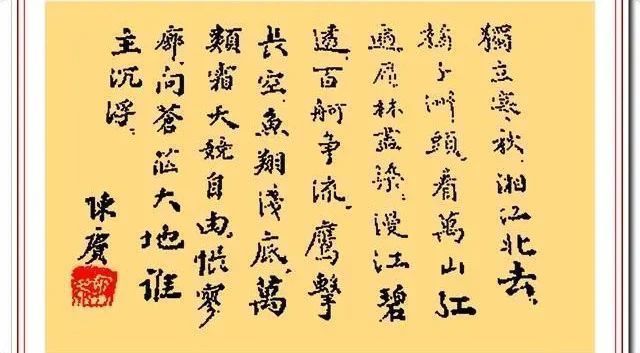 獨立寒秋,湘江北去,
橘子洲頭,看萬山红
遍,層林盡染,漫江碧
透,百舸争流,鷹擊
長空,魚翔淺底,萬
類霜天競自由,悵寥
廓,問蒼茫大地誰
主沉浮.
陳賡